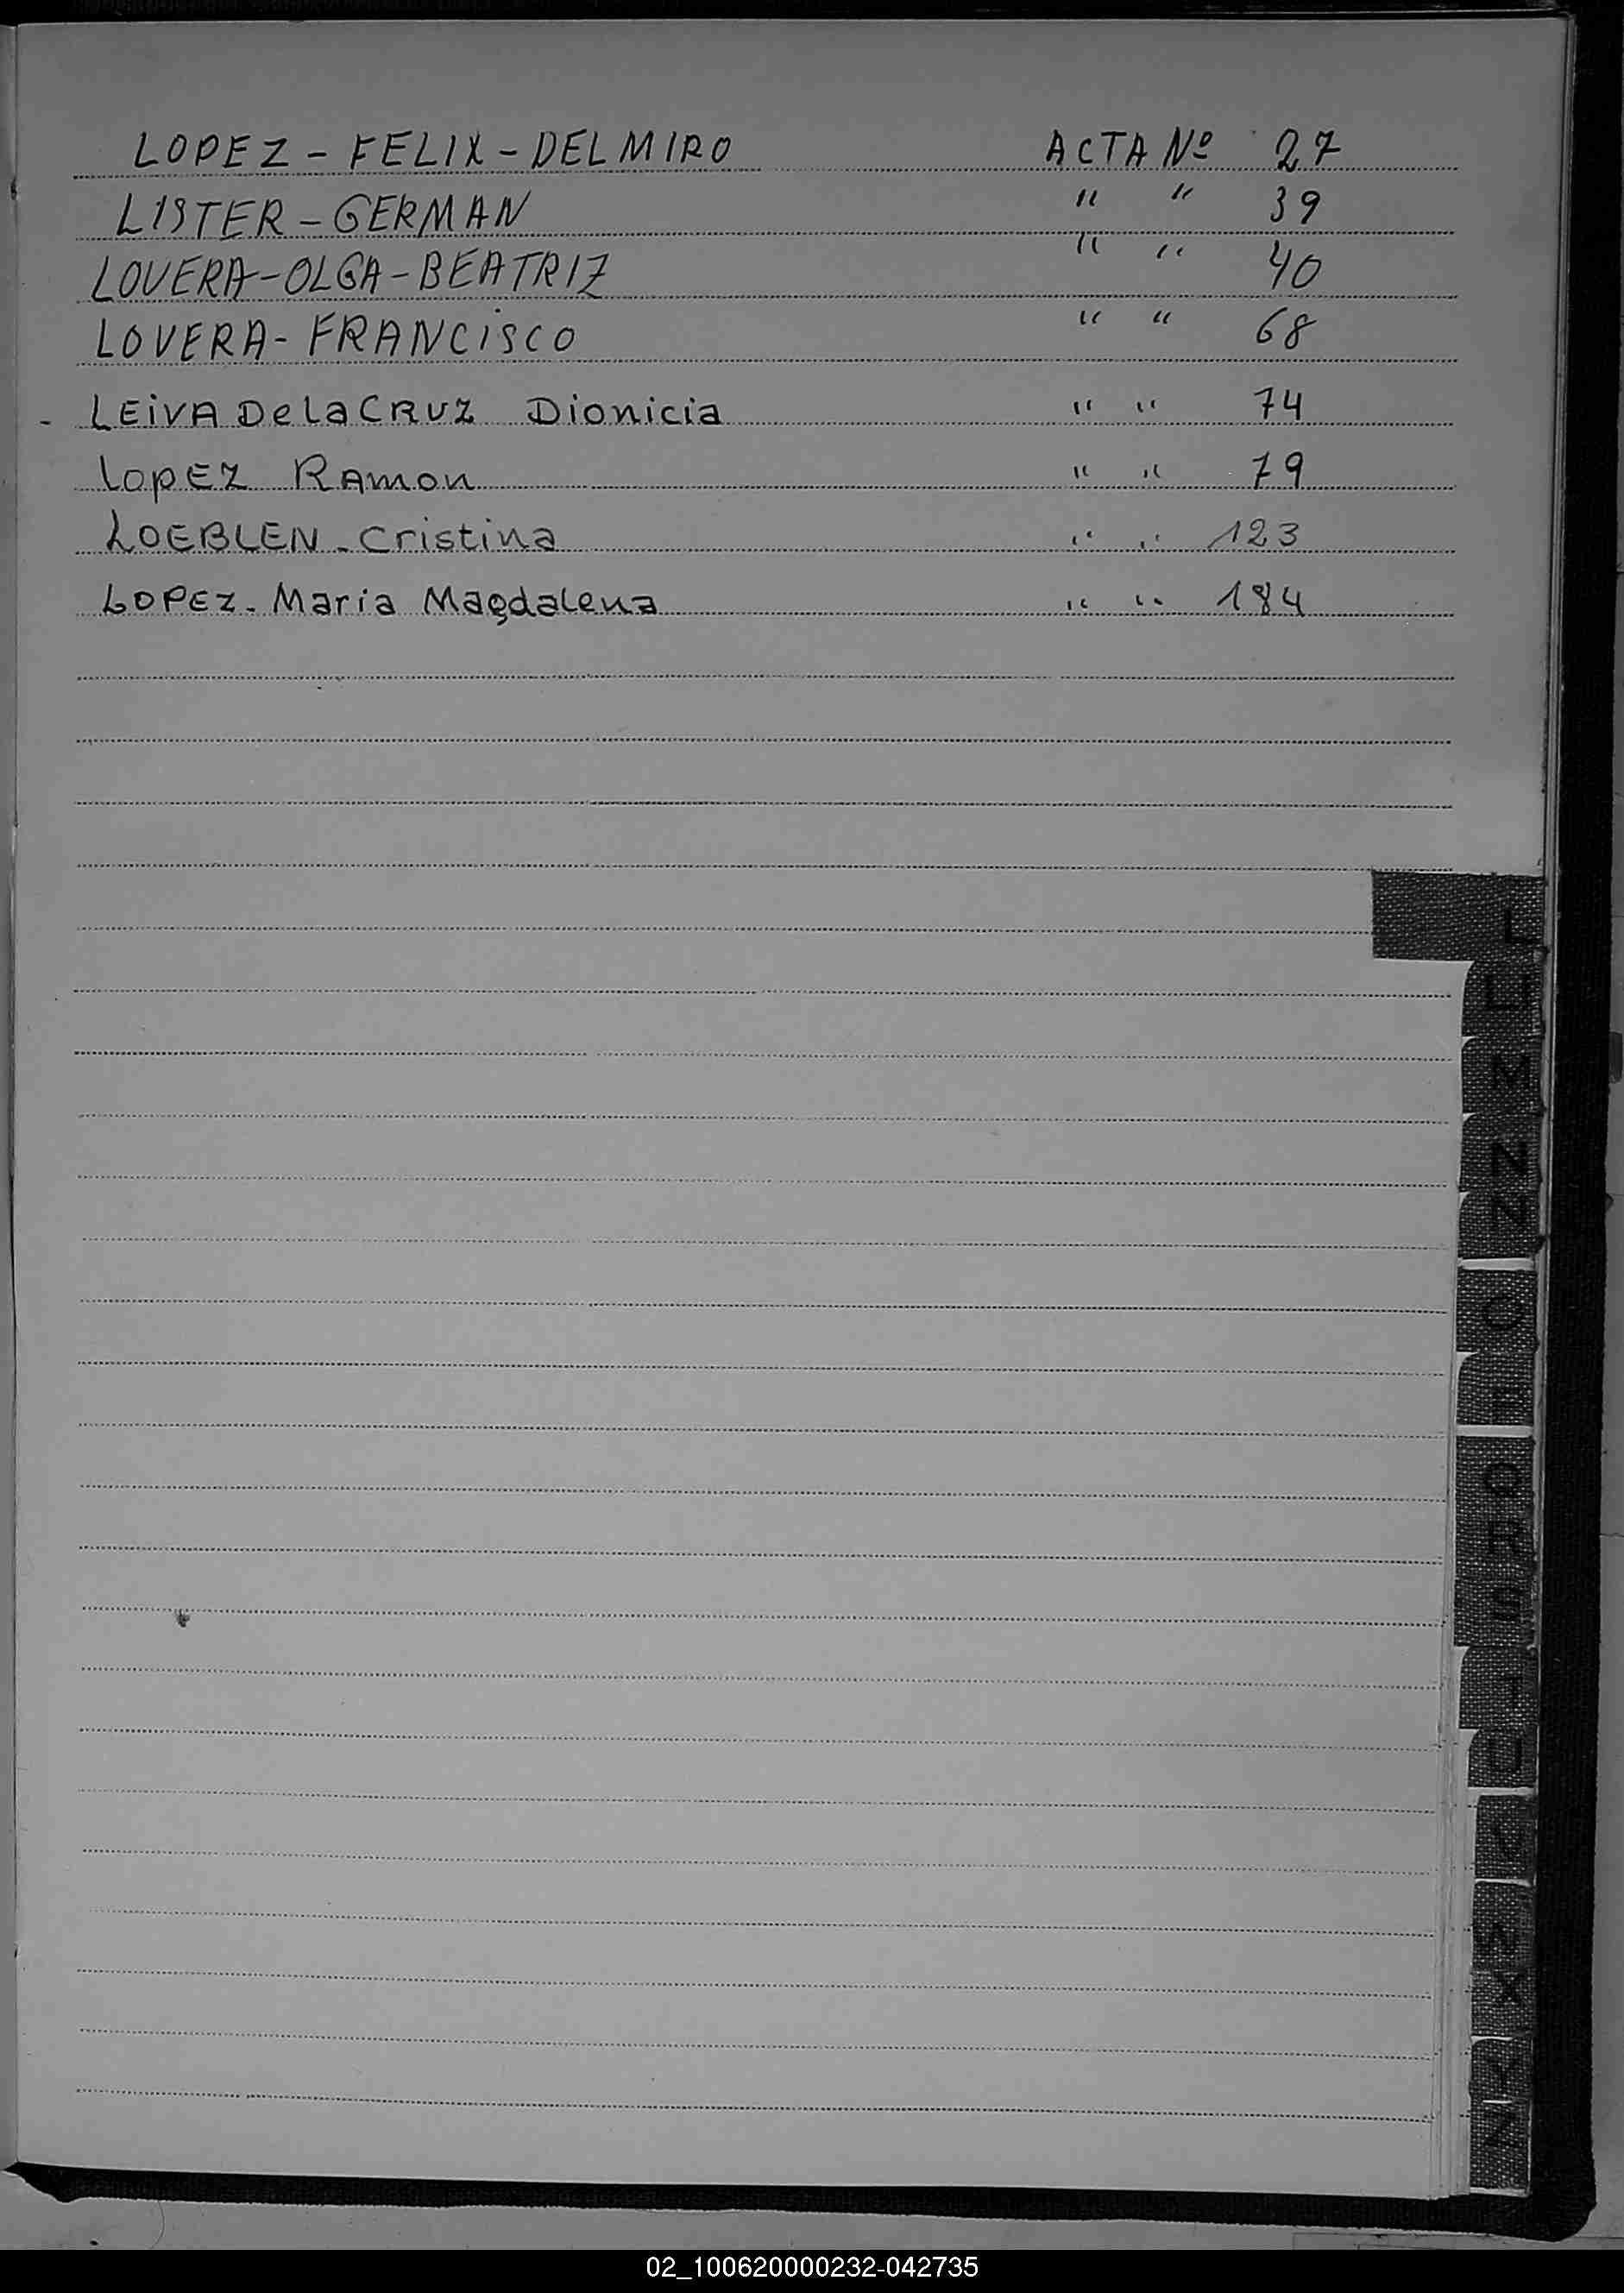 LOPEZ - FELIX - DELMIRO ACTA Nº 27
LISTER - GERMAN " " 39
LOVERA - OLGA - BEATRIZ " " 40
LOVERA - FRANCISCO " " 68
- LEiVA De La CRUZ Dionicia " " 74
LopEZ RAmon " " 79
LOEBLEN - Cristina " " 123
LOPEZ - Maria Magdalena " " 184
L
LL
M
N
Ñ
O
P
Q
R
S
T
U
V
W
X
Y
Z
02_100620000232-042735